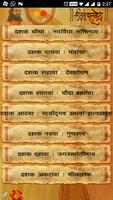 2:27
दशक चौथा : नवविधा भक्तिनाम
दशक पाचवा : मंत्रांचा
दशक सहावा : देवशोधन
दशक सातवा : चौदा ब्रह्मांचा
दशक आठवा : मायोद्भव अथवा ज्ञानदशक
दशक नववा : गुणरूप
दशक दहावा : जगज्जोतीनाम
दशक अकरावा : भीमदशक